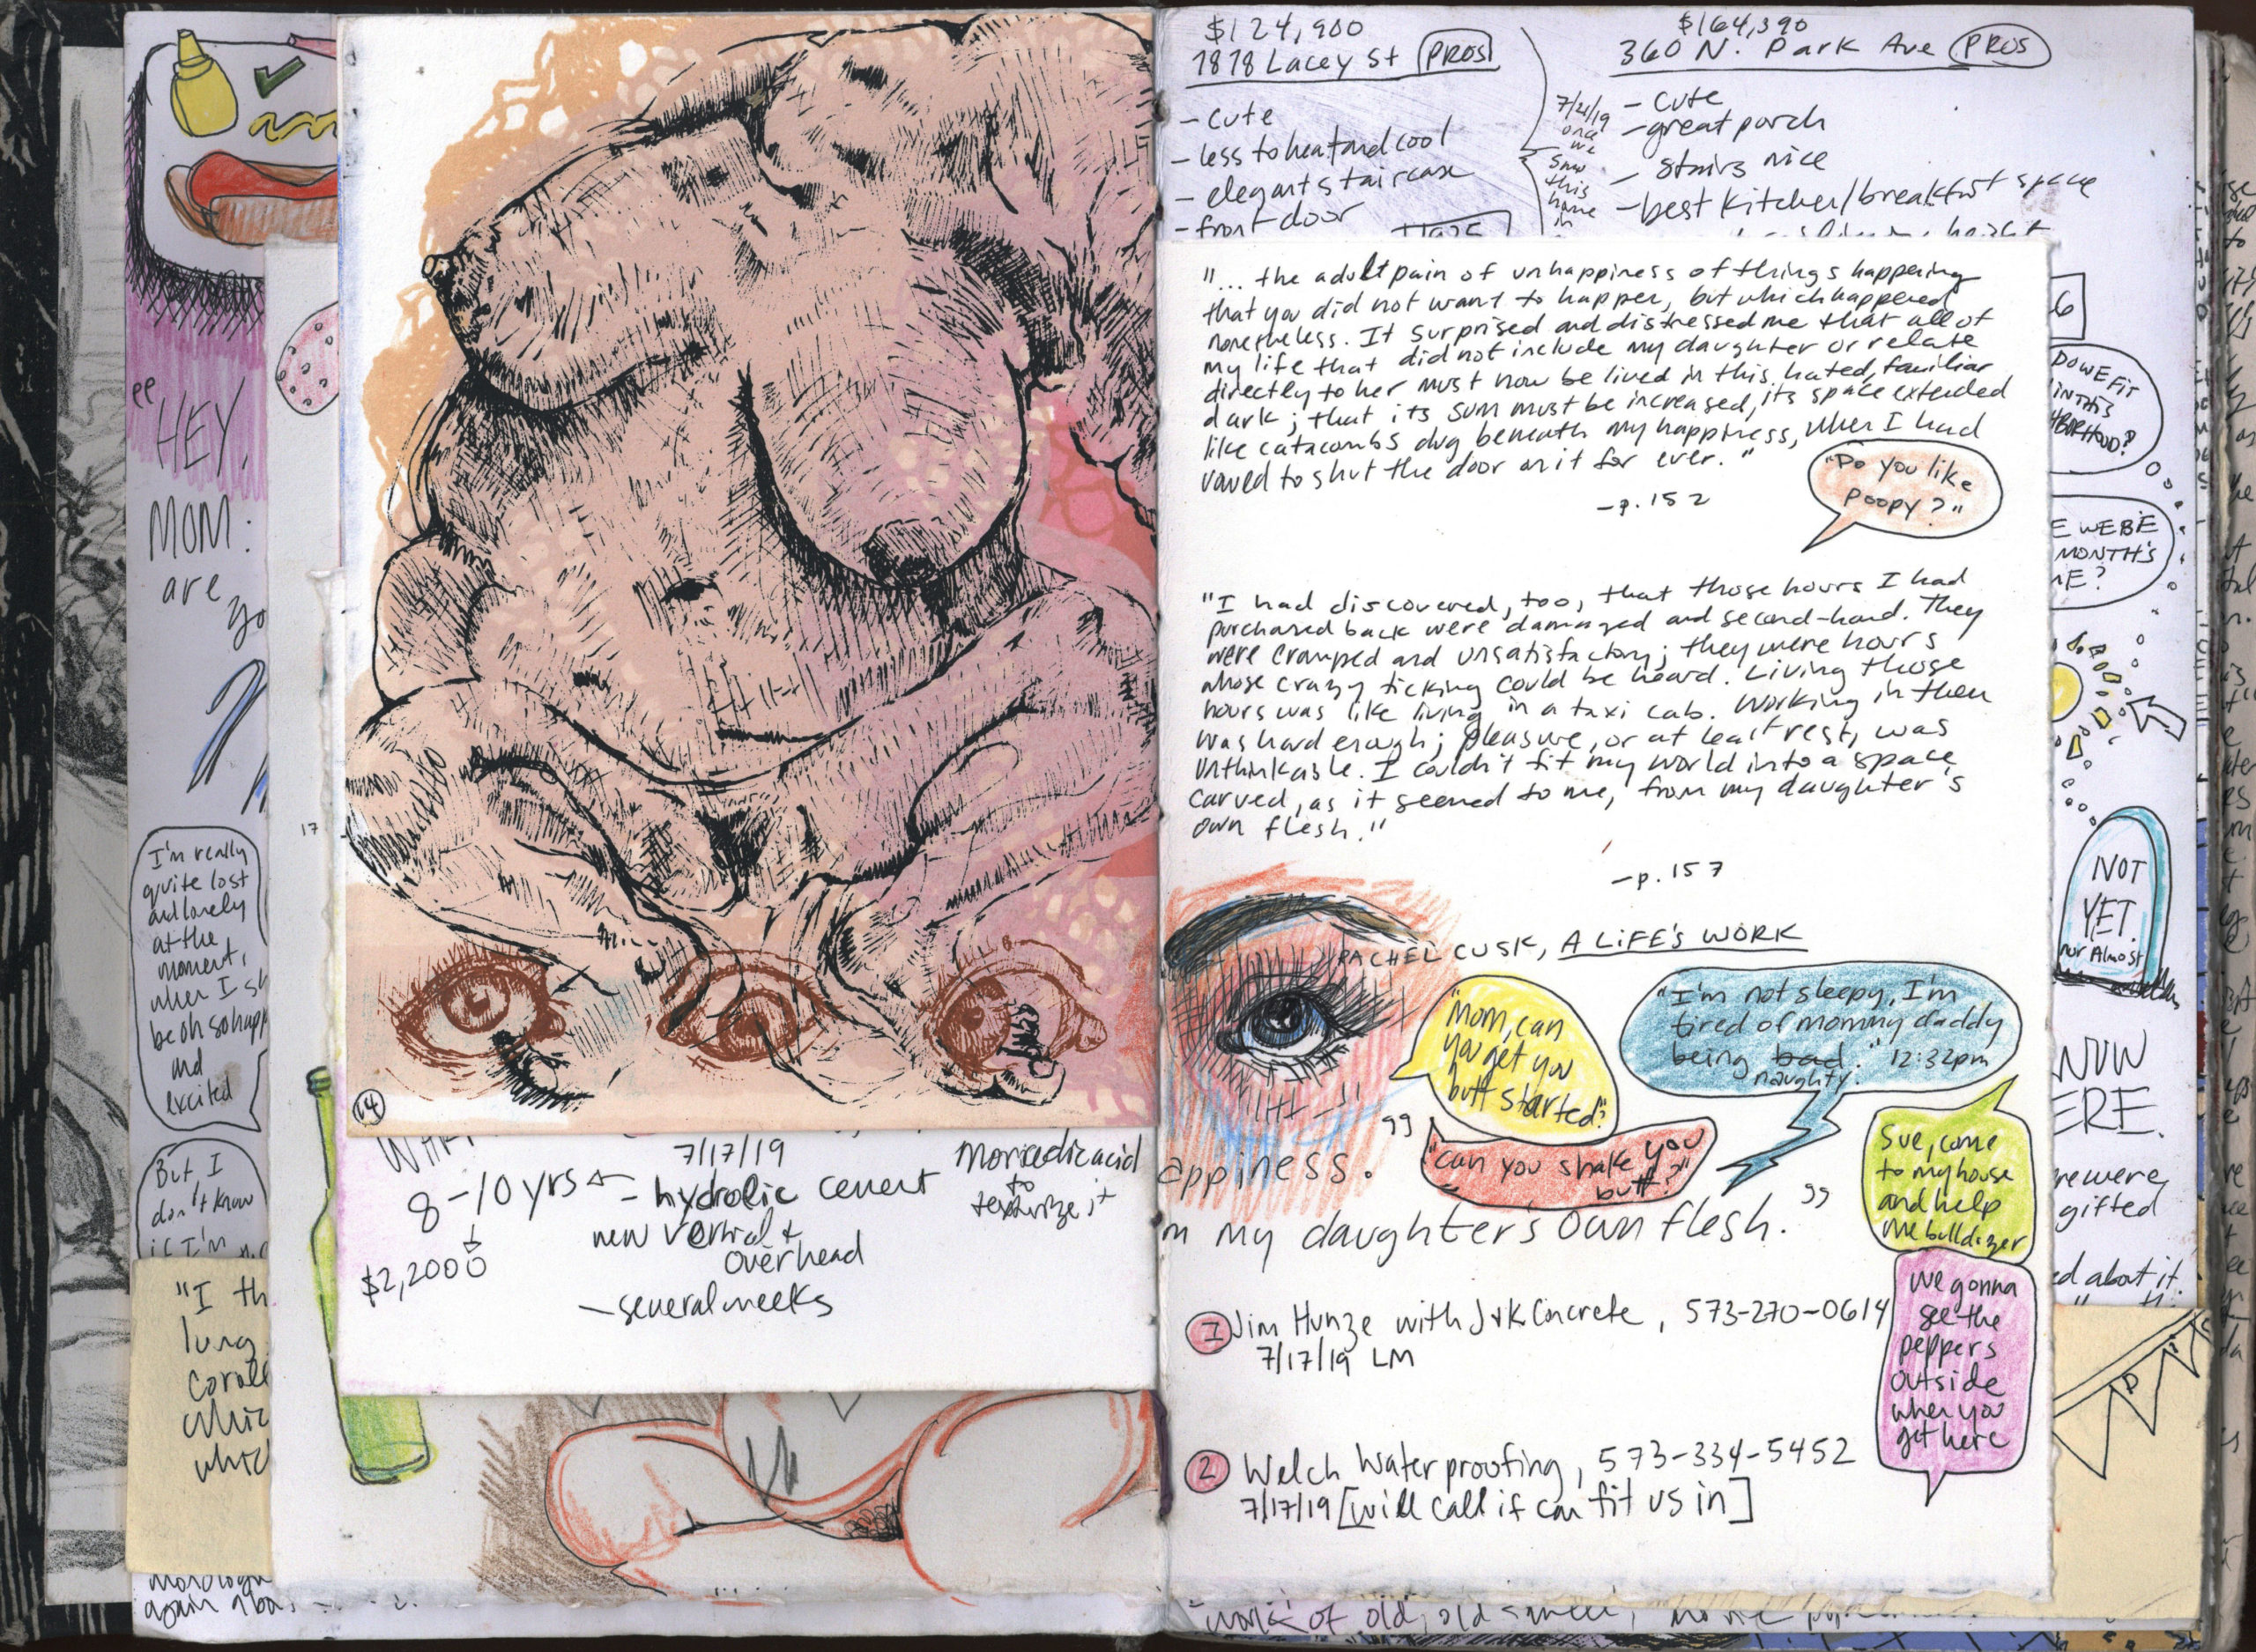 HEY,
MOM:
are
I'm really
quite lost
and lonely
at the
moment,
when I
be oh so happ
and
excited
But I
don't know
if I'm
"I th
lung
corall
which
again
17
14
7/17/19
8-10 yrs
- hydrolic cement
new vertical +
overhead
$2,2000
- several weeks
acid
to
texturize it
$124,900
1878 Lacey St PROS
- cute
- less to heat and cool
- elegant staircase
- front door
7/21/19
once
we
saw
this
home
in
$164,390
360 N. Park Ave PROS
- cute
- great porch
- stairs nice
- best kitchen/breakfast space
height
"... the adult pain of unhappiness of things happening
that you did not want to happen, but which happened
nonetheless. It surprised and distressed me that all of
my life that did not include my daughter or relate
directly to her must now be lived in this hated, familiar
dark; that its sum must be increased, its space extended
like catacombs dug beneath my happiness, when I had
vowed to shut the door on it for ever."
-p. 152
"Do you like
poopy?"
"I had discovered, too, that those hours I had
purchased back were damaged and second-hand. They
were cramped and unsatisfactory; they were hours
whose crazy ticking could be heard. Living those
hours was like living in a taxi cab. Working in them
was hard enough; pleasure, or at least rest, was
unthinkable. I couldn't fit my world into a space
carved, as it seemed to me, from my daughter's
own flesh."
-p. 157
RACHEL CUSK, A LIFE'S WORK
"Mom, can
you get you
butt started?"
"I'm not sleepy, I'm
tired of mommy daddy
being bad." 12:32pm
naughty.
"can you shake you
butt?"
Sue, come
to my house
and help
me bulldizer
we gonna
see the
peppers
outside
when you
get here
appiness."
m my daughter's own flesh."
1 Jim Hunze with J+K Concrete, 573-270-0614
7/17/19 LM
2 Welch Waterproofing, 573-334-5452
7/17/19 [will call if can fit us in]
6
DO WE FIT
IN THIS
HBORHOOD?
E WE BE
MONTH'S
ME?
NOT
YET.
Nor Almost
NOW
ERE.
re were
gifted
ed about it.
of old, old